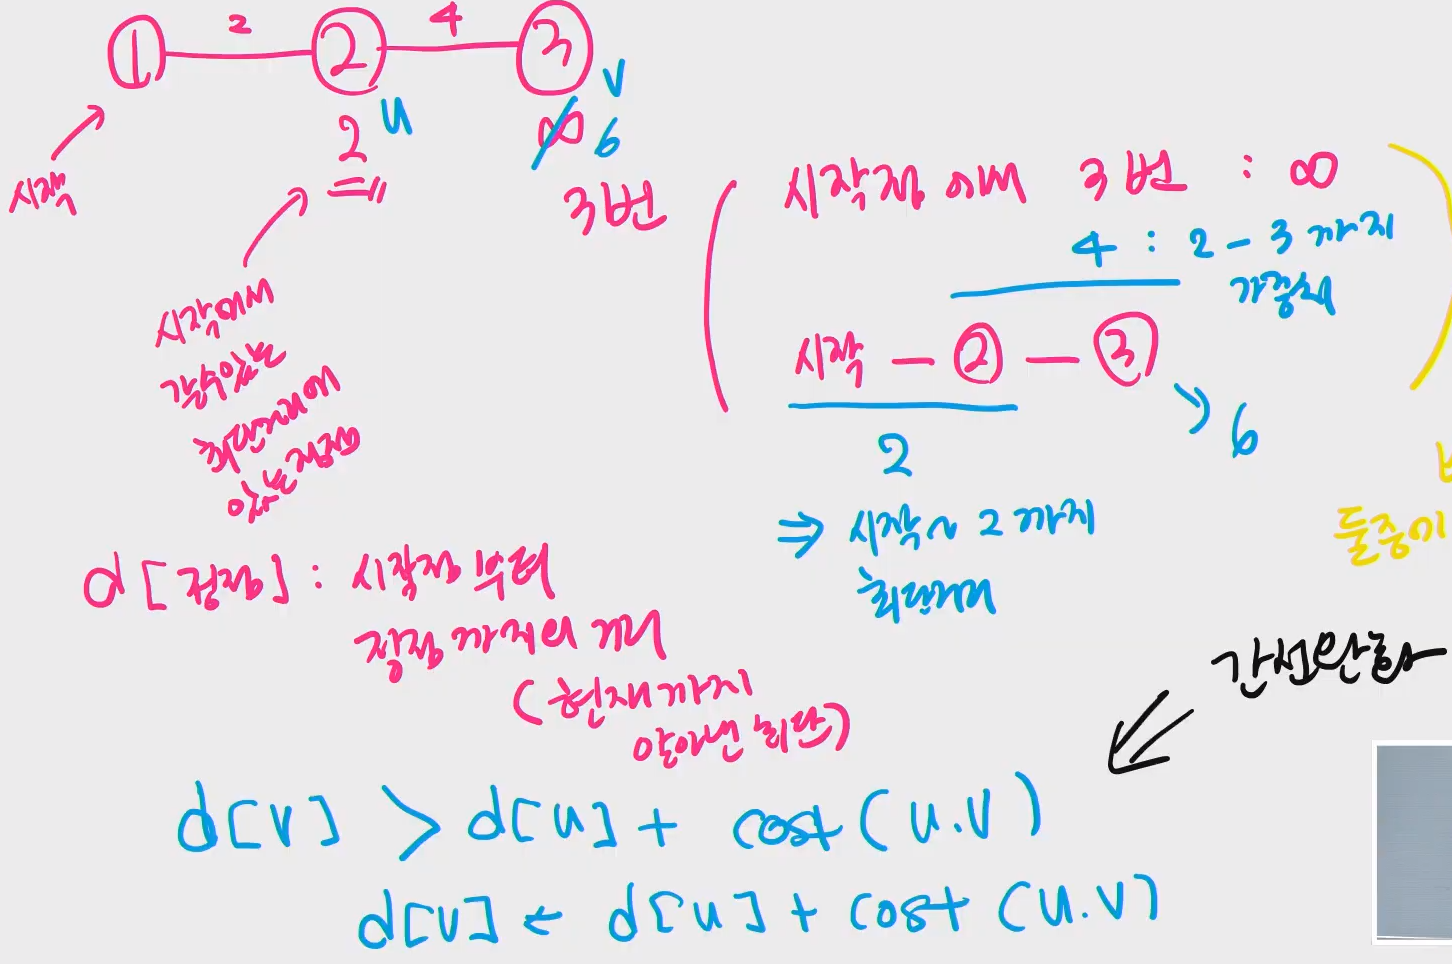 1 2 2 4 3
2 u
∞ v 6
시작
3번
시작에서
갈수있는
최단거리에
있는 정점
시작점에서 3번 : ∞
4 : 2 - 3 까지
가중치
시작 - 2 - 3
2
6
⇒ 시작 ~ 2 까지
최단거리
둘중에
d[정점] : 시작점부터
정점까지의 거리
(현재까지
알아낸 최단)
간선완화
d[v] > d[u] + cost(u.v)
d[v] ← d[u] + cost(u.v)